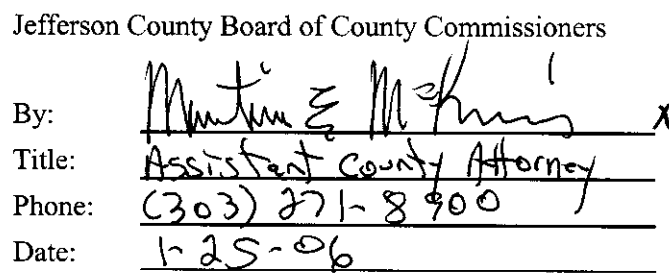 Jefferson County Board of County Commissioners
By: Martin E McK x
Title: Assistant County Attorney
Phone: (303) 271-8900
Date: 1-25-06